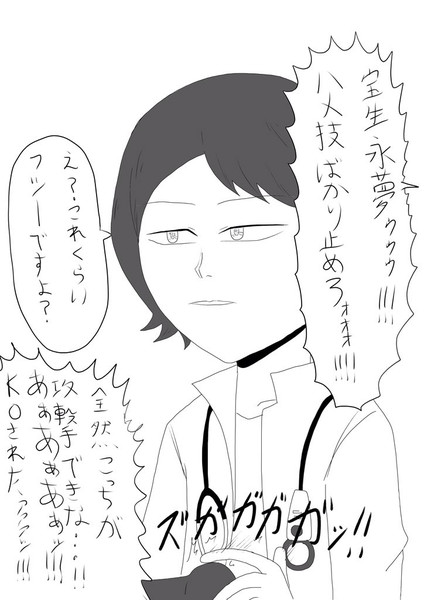 宝生永夢ゥゥゥ!!!
ハメ技ばかり止めろォォォ!!!!
え?これくらい
フツーですよ?
全然こっちが
攻撃手できな...!!
あぁあぁあぁッ!!!
KOされたァァァッ!!
ズガガガガッ!!